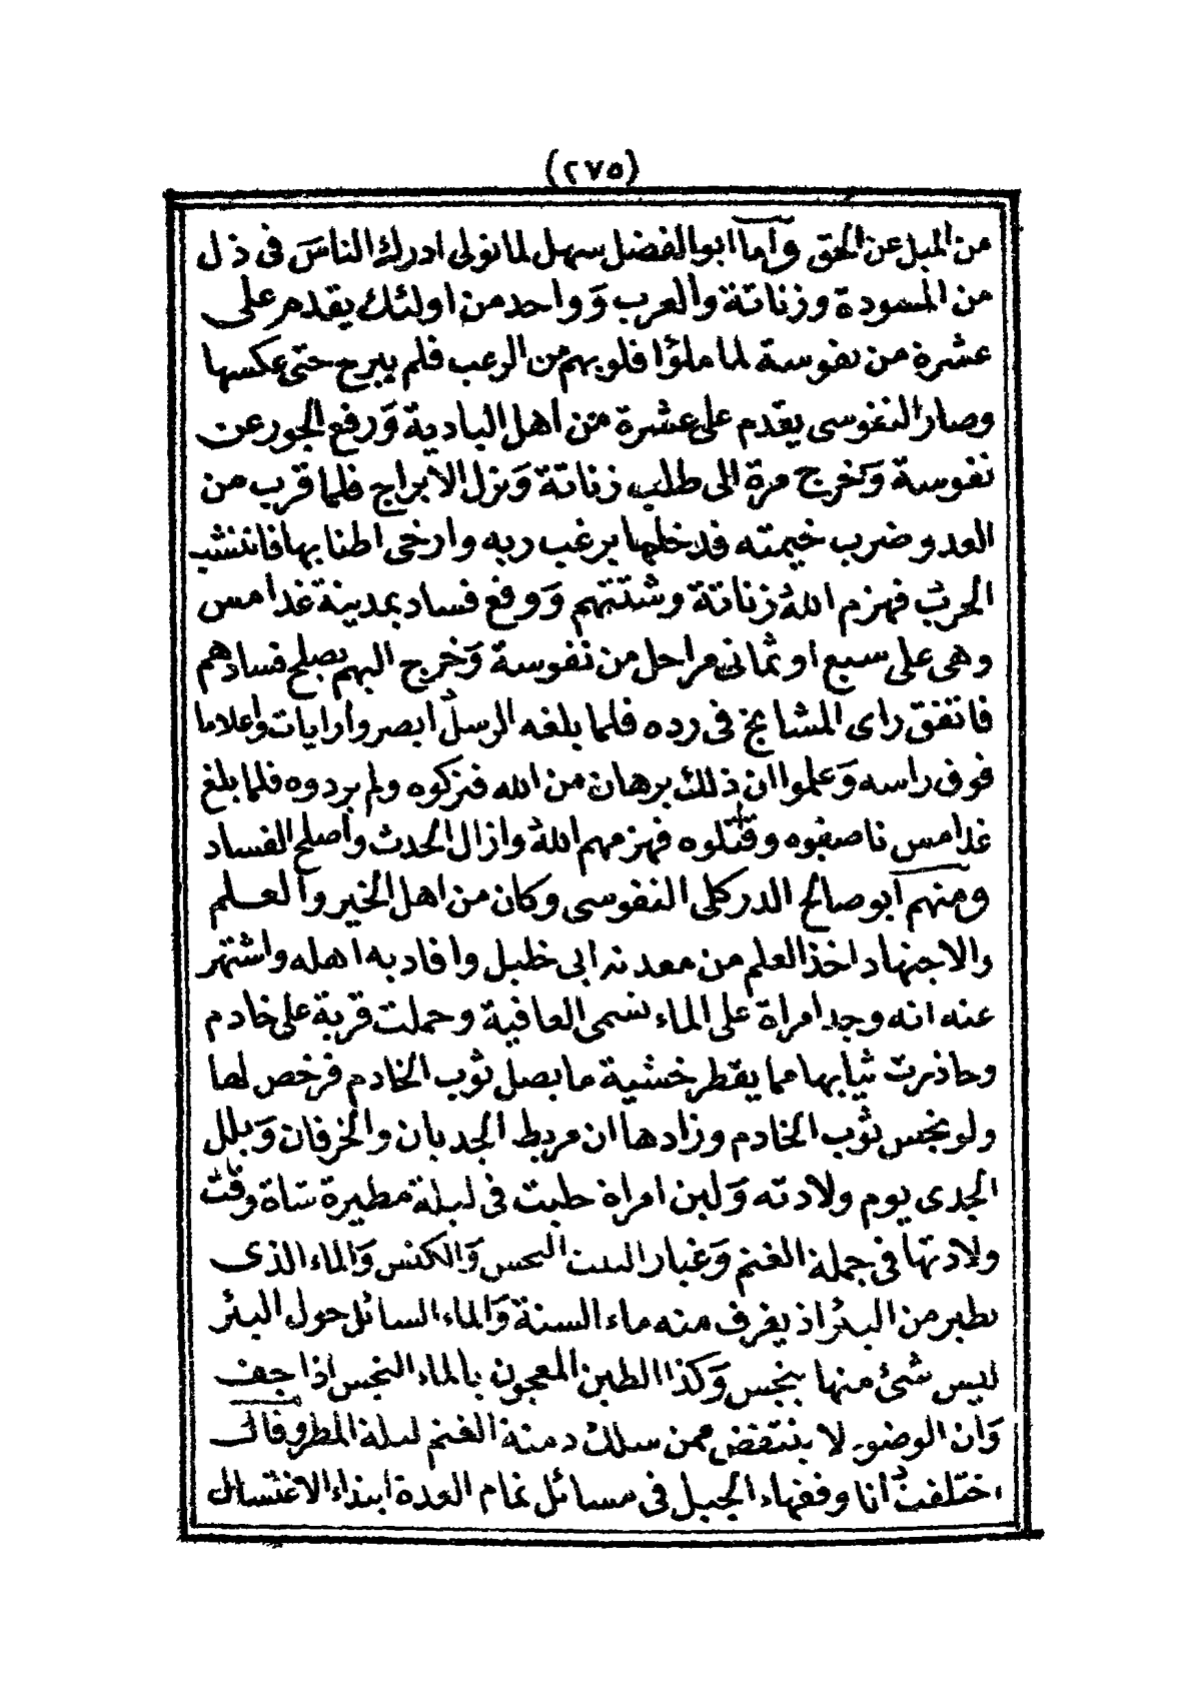 (٢٧٥)
من الميل عن الحق وأما ابو الفضل سهل لما تولى ادرك الناس فى ذل
من المسودة وزناتة والعرب وَواحد من اولئك يقدم على
عشرة من نفوسة لما ملؤا قلوبهم من الرعب فلم يبرح حتى عكسها
وصار النفوسى يقدم على عشرة من اهل البادية وَرفع الجور عن
نفوسة وَخرج مرة الى طلب زناتة وَنزل الابراج فلما قرب من
العدو ضرب خيمته فدخلها يرغب ربه وارخى اطنابها فانتشب
الحرب فهزم الله زناتة وشتتهم وَوقع فساد بمدينة غدامس
وهى على سبع او ثمانى مراحل من نفوسة وَخرج اليهم يصلح فسادهم
فاتفق راى المشايخ فى رده فلما بلغه الرسل ابصروا رايات واعلاما
فوق راسه وَعلموا ان ذلك برهان من الله فتركوه ولم يردوه فلما بلغ
غدامس ناصفوه وقتلوه فهزمهم الله وازال الحدث واصلح الفساد
ومنهم ابو صالح الدركلى النفوسى وكان من اهل الخير والعلم
والاجتهاد اخذ العلم من معدنه ابى خليل وافاد به اهله واشتهر
عنه انه وجد امراة على الماء تسمى العافية وحملت قربة على خادم
وحاذرت ثيابها مما يقطر خشية ما يصل ثوب الخادم فرخص لها
ولو نجس ثوب الخادم وزادها ان مربط الجديان والخرفان وَبلل
الجدى يوم ولادته وَلبن امراة حلبت فى ليلة مطيرة شاة وقت
ولادتها فى جملة الغنم وَغبار البيت النجس وَالكنس وَالماء الذى
يطير من البئر اذ يغرف منه ماء السنة وَالماء السائل حول البئر
ليس شئ منها بنجس وَكذا الطين المعجون بالماء النجس اذا جف
وَان الوضوء لا ينتقض ممن سلك دمنة الغنم ليلة المطر وقال
اختلفت انا وفقهاء الجبل فى مسائل تمام العدة ابتداء الاغتسال